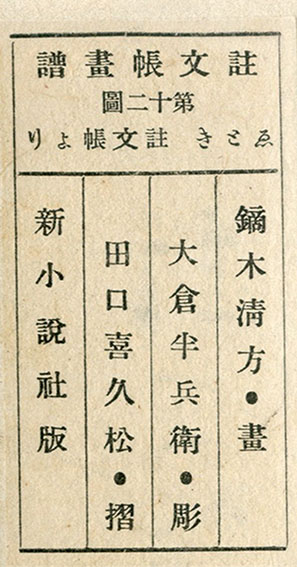 註文帳畫譜
第十二圖
ゑとき 註文帳より
鏑木淸方・畫
大倉半兵衞・彫
田口喜久松・摺
新小說社版